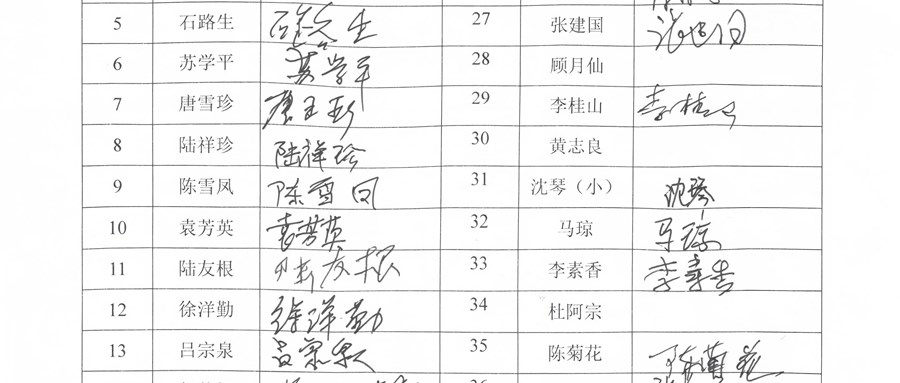 5 石路生 石路生 27 张建国 张建国
6 苏学平 苏学平 28 顾月仙
7 唐雪珍 唐雪珍 29 李桂山 李桂山
8 陆祥珍 陆祥珍 30 黄志良
9 陈雪凤 陈雪凤 31 沈琴（小） 沈琴
10 袁芳英 袁芳英 32 马琼 马琼
11 陆友根 陆友根 33 李素香 李素香
12 徐洋勤 徐洋勤 34 杜阿宗
13 吕宗泉 吕宗泉 35 陈菊花 陈菊花